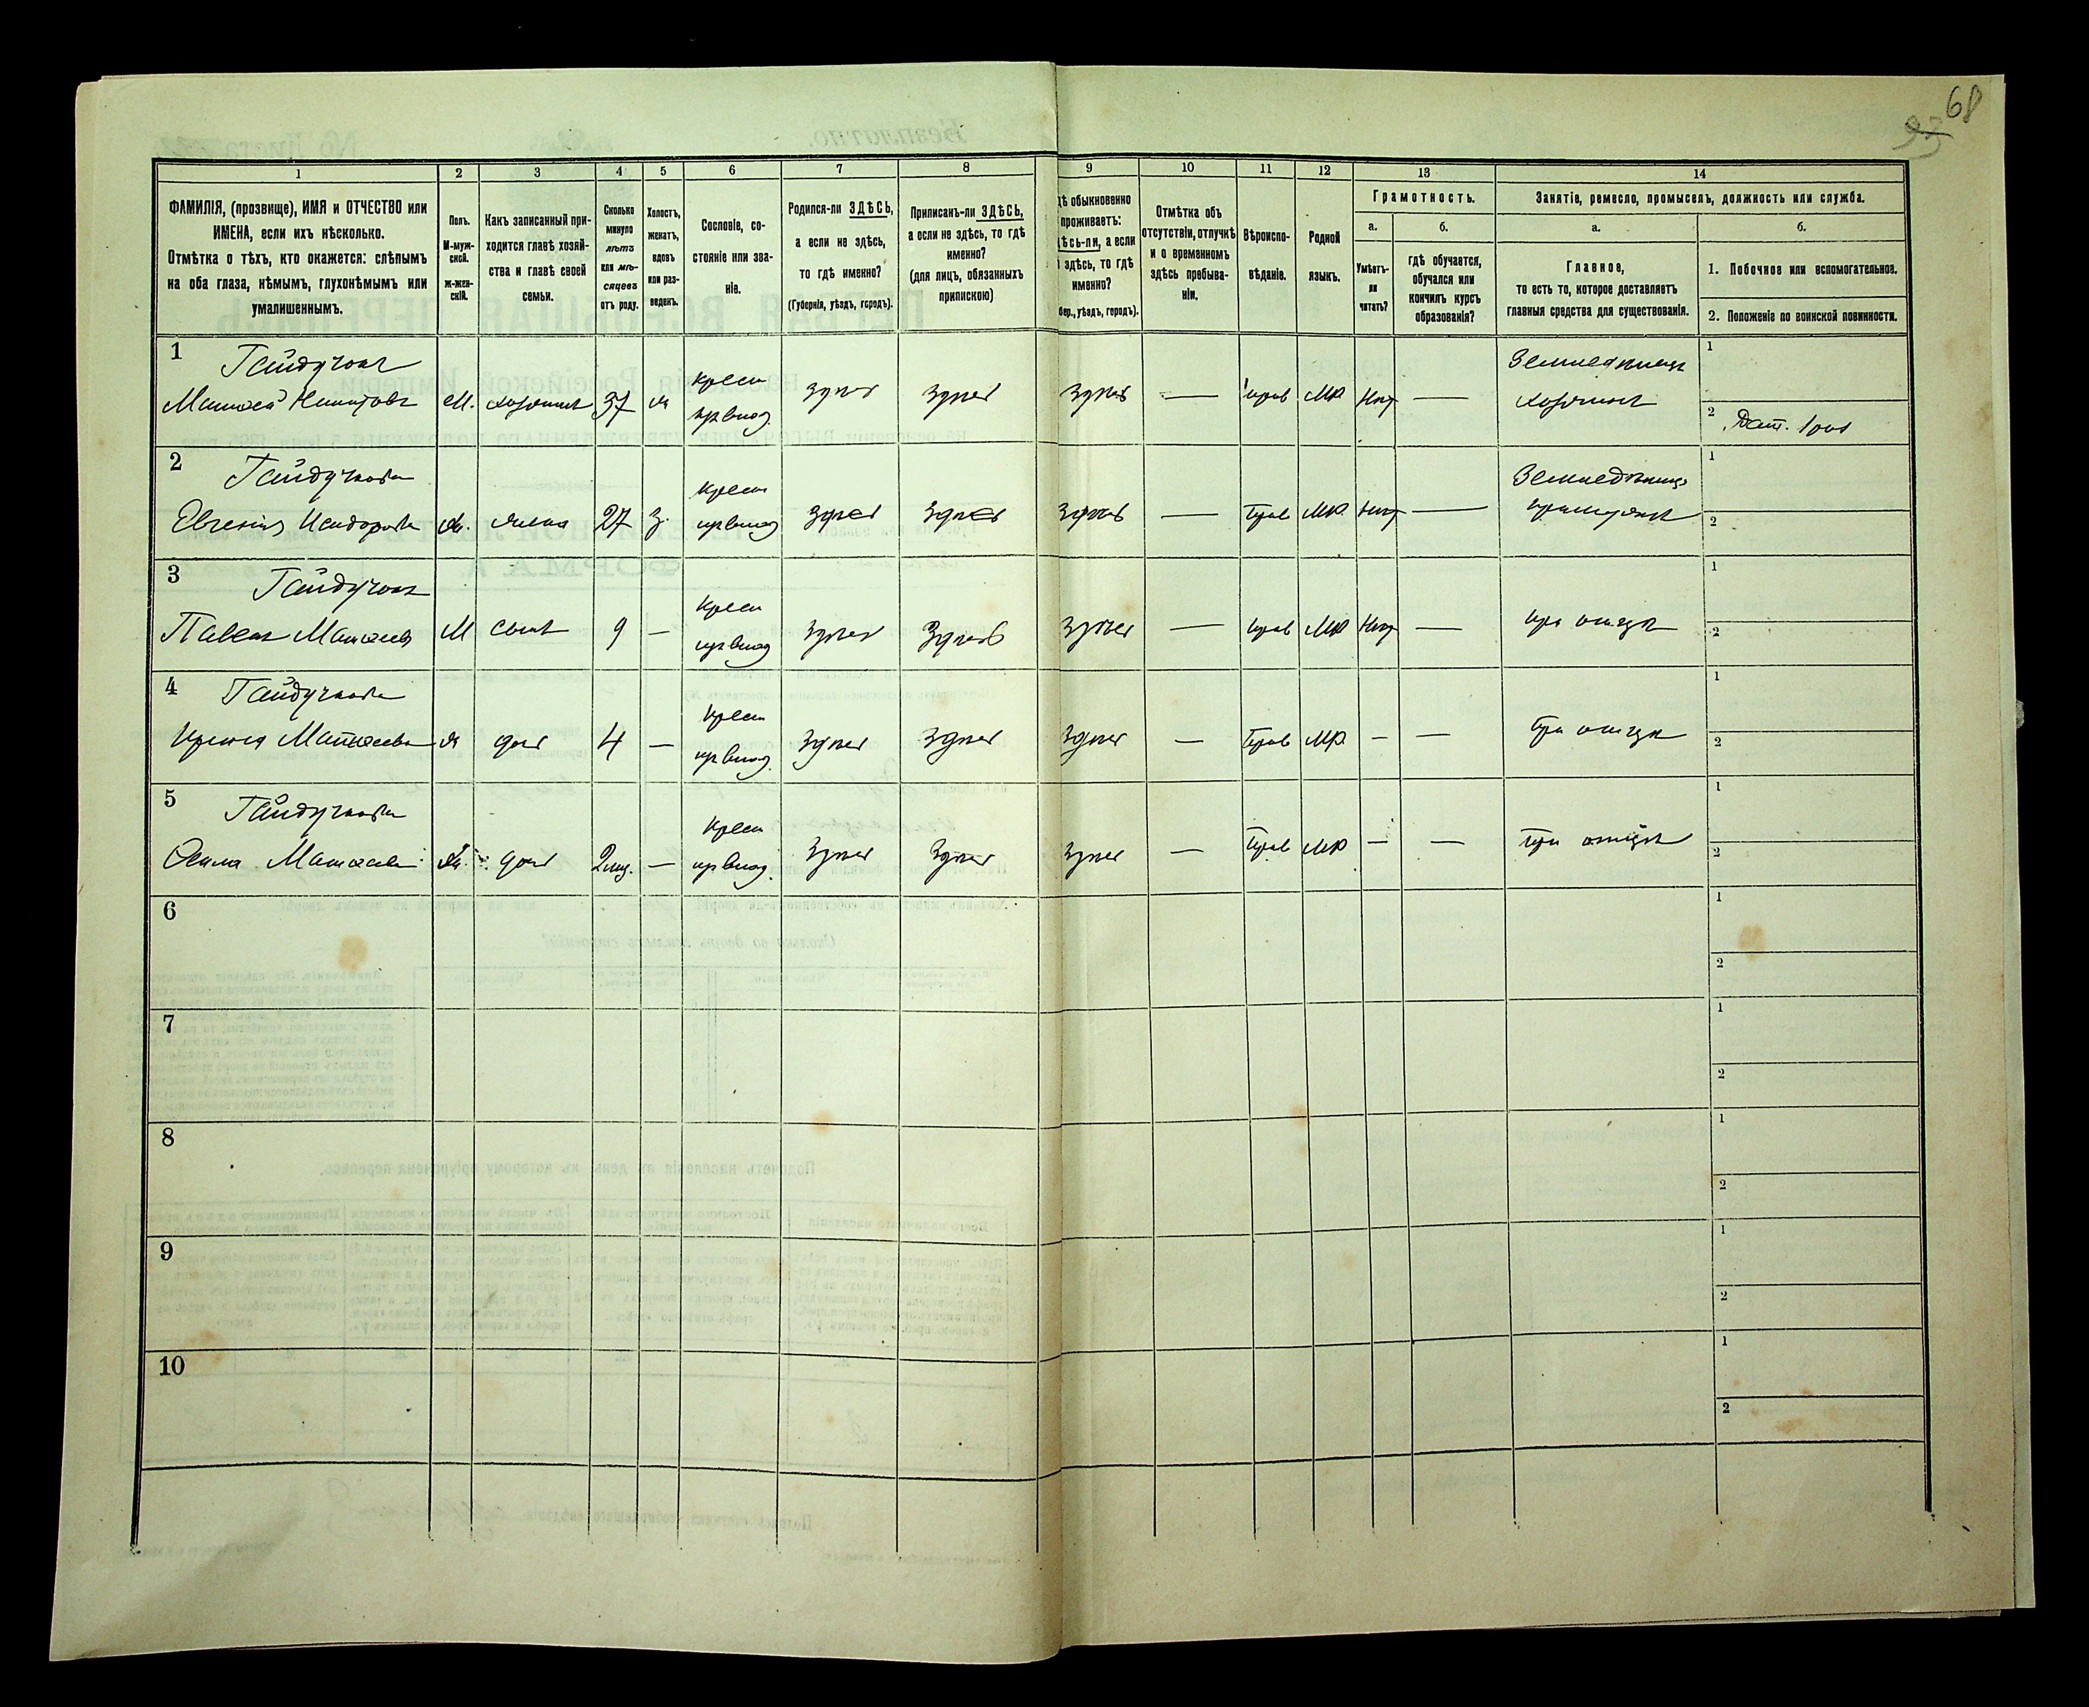 68
93
1
2
3
4
5
6
7
8
9
10
11
12
13
14
ФАМИЛІЯ, (прозвище), ИМЯ и ОТЧЕСТВО или
ИМЕНА, если ихъ нѣсколько.
Отмѣтка о тѣхъ, кто окажется: слѣпымъ
на оба глаза, нѣмымъ, глухонѣмымъ или
умалишеннымъ.
Полъ.
М-муж-
ской.
ж-жен-
скій.
Какъ записанный при-
ходится главѣ хозяй-
ства и главѣ своей
семьи.
Сколько
минуло
лѣтъ
или мѣ-
сяцевъ
отъ роду.
Холостъ,
женатъ,
вдовъ
или раз-
веденъ.
Сословіе, со-
стояніе или зва-
ніе.
Родился-ли ЗДѢСЬ,
а если не здѣсь,
то гдѣ именно?
(Губернія, уѣздъ, городъ).
Приписанъ-ли ЗДѢСЬ,
а если не здѣсь, то гдѣ
именно?
(для лицъ, обязанныхъ
припискою)
дѣ обыкновенно
проживаетъ:
дѣсь-ли, а если
здѣсь, то гдѣ
именно?
бер., уѣздъ, городъ).
Отмѣтка объ
отсутствіи, отлучкѣ
и о временномъ
здѣсь пребыва-
ніи.
Вѣроиспо-
вѣданіе.
Родной
языкъ.
Грамотность.
а.
б.
Умѣетъ-
ли
читать?
гдѣ обучается,
обучался или
кончилъ курсъ
образованія?
Занятіе, ремесло, промыселъ, должность или служба.
а.
б.
Главное,
то есть то, которое доставляетъ
главныя средства для существованія.
1. Побочное или вспомогательное.
2. Положеніе по воинской повинности.
1
Гайдучокъ
М. хозяинъ 37 ж
крест
здѣсь здѣсь здѣсь — прав МР Нѣт —
Земледѣлецъ
хозяинъ
1
2
2
Гайдучкова
Евгенія Исидорова ж. жена 27 з.
крест
здѣсь здѣсь здѣсь — Прав МР Нѣт —
1
2
3
Гайдучокъ
Павелъ М сынъ 9 —
крест
здѣсь здѣсь здѣсь — прав МР Нѣт —
при отцѣ
1
2
4
Гайдучкова
ж дочь 4 —
крест
здѣсь здѣсь здѣсь — Прав МР — —
При отцѣ
1
2
5
Гайдучкова
ж. дочь 2 мѣс. —
крест
здѣсь здѣсь здѣсь — Прав МР — —
при отцѣ
1
2
6
1
2
7
1
2
8
1
2
9
1
2
10
1
2